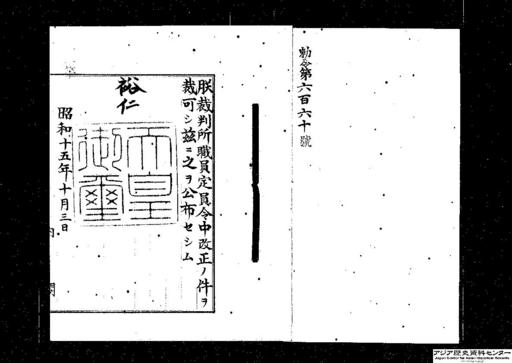 勅令第六百六十號
朕裁判所職員定員令中改正ノ件ヲ
裁可シ茲ニ之ヲ公布セシム
裕仁
天皇
御璽
昭和十五年十月三日
内閣
アジア歴史資料センター
Japan Center for Asian Historical Records